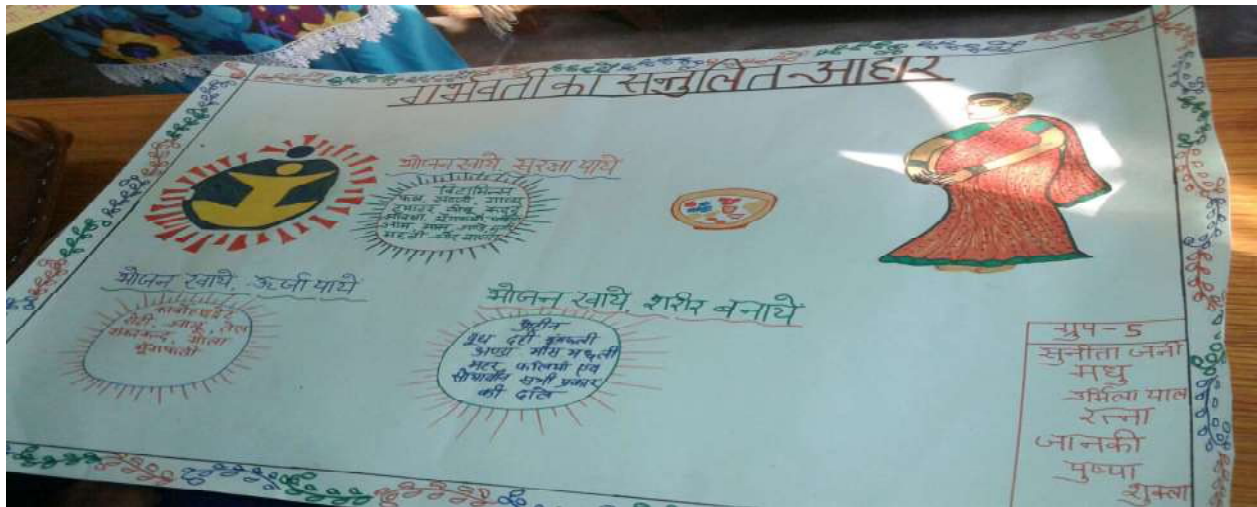 गर्भवती का सन्तुलित आहार
भोजन खाये सुरक्षा पाये
विटामिन्स
फल सब्जी गाजर
टमाटर नीबू कद्दू
आम
मछली और
भोजन खाये, ऊर्जा पाये
कार्बोहाइड्रेट
रोटी, आलू, तेल
शकरकन्द, माला
मूंगफली
भोजन खाये, शरीर बनाये
प्रोटीन
दूध दही मूंगफली
अण्डा माँस मछली
मटर फलियाँ एवं
सोयाबीन सभी प्रकार
की दाले
ग्रुप-5
सुनीता जनी
मधु
उर्मिला पाल
रत्ना
जानकी
पुष्पा
शुक्ला